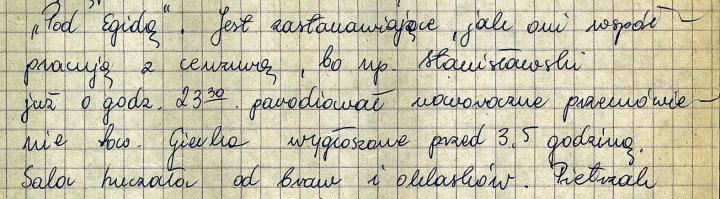 „Pod Egidą". Jest zastanawiające, jak oni współ-
pracują z cenzurą, bo np. Stanisławski
już o godz. 23³⁰. parodiował noworoczne przemówie-
nie tow. Gierka wygłoszone przed 3,5 godziną.
Sala huczała od braw i oklasków. Pietrzak